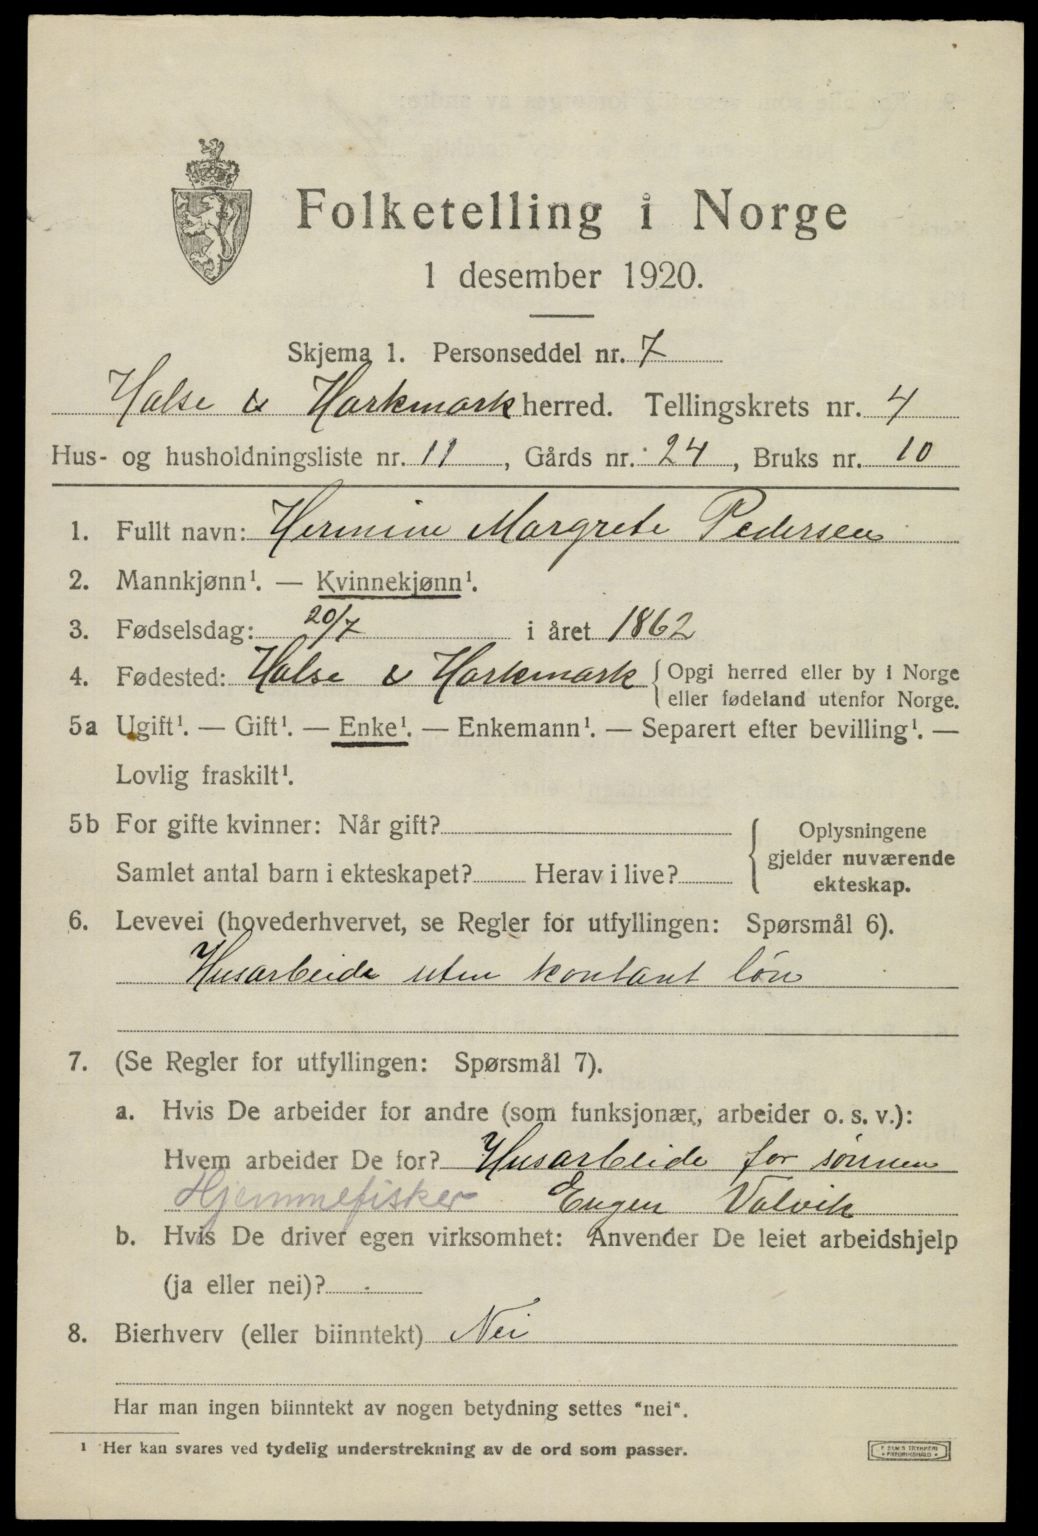 Folketelling i Norge
1 desember 1920.
Skjema 1. Personseddel nr. 7
Halse & Harkmark herred. Tellingskrets nr. 4
Hus- og husholdningsliste nr. 11, Gårds nr. 24, Bruks nr. 10
1. Fullt navn: Hermine Margrete Pedersen
2. Mannkjønn¹. — Kvinnekjønn¹.
3. Fødselsdag: 20/7 i året 1862
4. Fødested: Halse & Harkmark { Opgi herred eller by i Norge
eller fødeland utenfor Norge.
5a Ugift¹. — Gift¹. — Enke¹. — Enkemann¹. — Separert efter bevilling¹. —
Lovlig fraskilt¹.
5b For gifte kvinner: Når gift?
Samlet antal barn i ekteskapet? Herav i live?
Oplysningene
gjelder nuværende
ekteskap.
6. Levevei (hovederhvervet, se Regler for utfyllingen: Spørsmål 6).
Husarbeide uten kontant løn
7. (Se Regler for utfyllingen: Spørsmål 7).
a. Hvis De arbeider for andre (som funksjonær, arbeider o. s. v.):
Hvem arbeider De for? Husarbeide for sønnen
Hjemmefisker Eugen Valvik
b. Hvis De driver egen virksomhet: Anvender De leiet arbeidshjelp
(ja eller nei)?
8. Bierhverv (eller biinntekt) Nei
Har man ingen biinntekt av nogen betydning settes "nei".
¹ Her kan svares ved tydelig understrekning av de ord som passer.